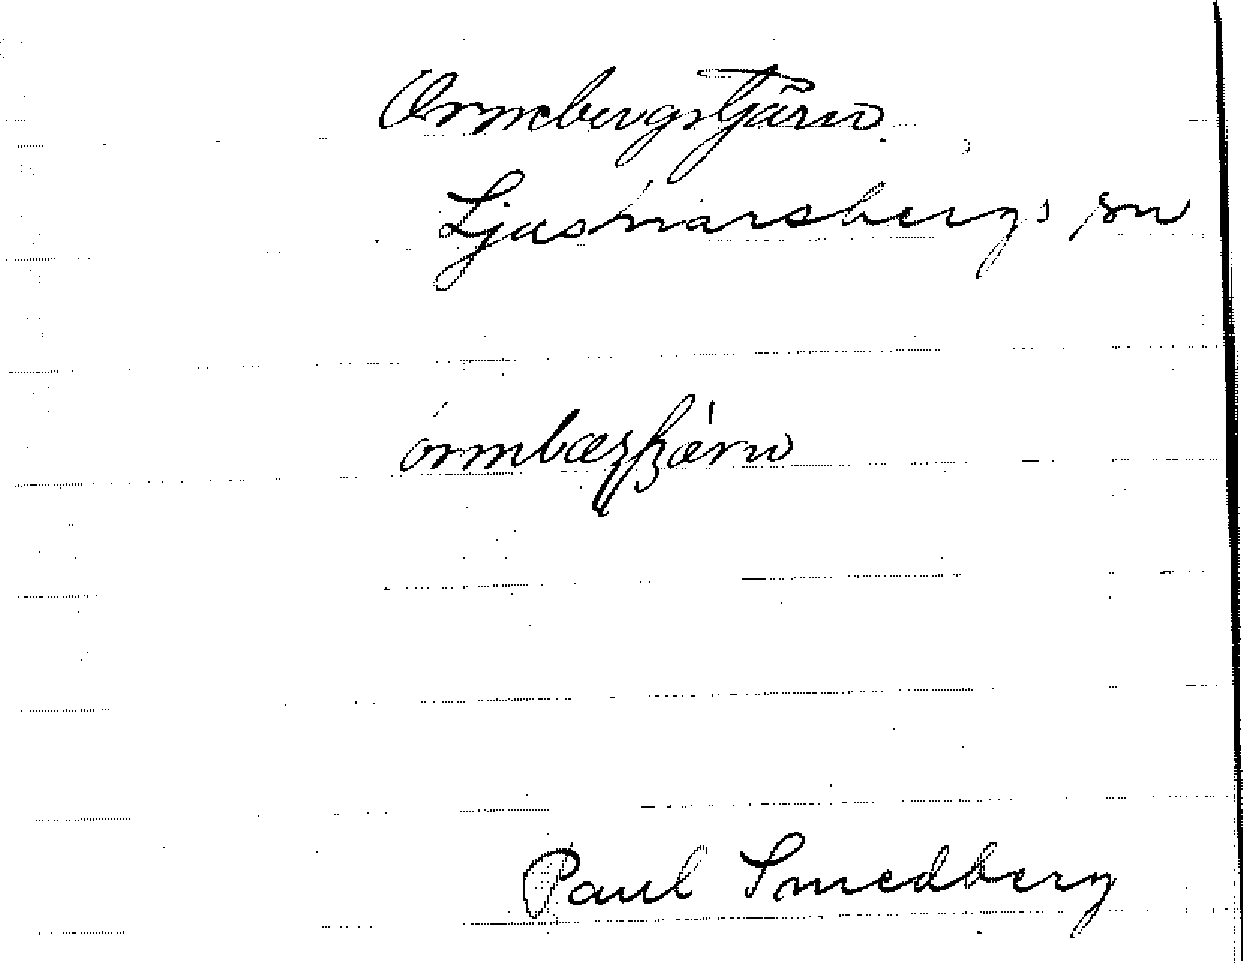 Ormbergstjärn
Ljusnarsbergs sn
órmbæʒʃʒærn
Paul Smedberg